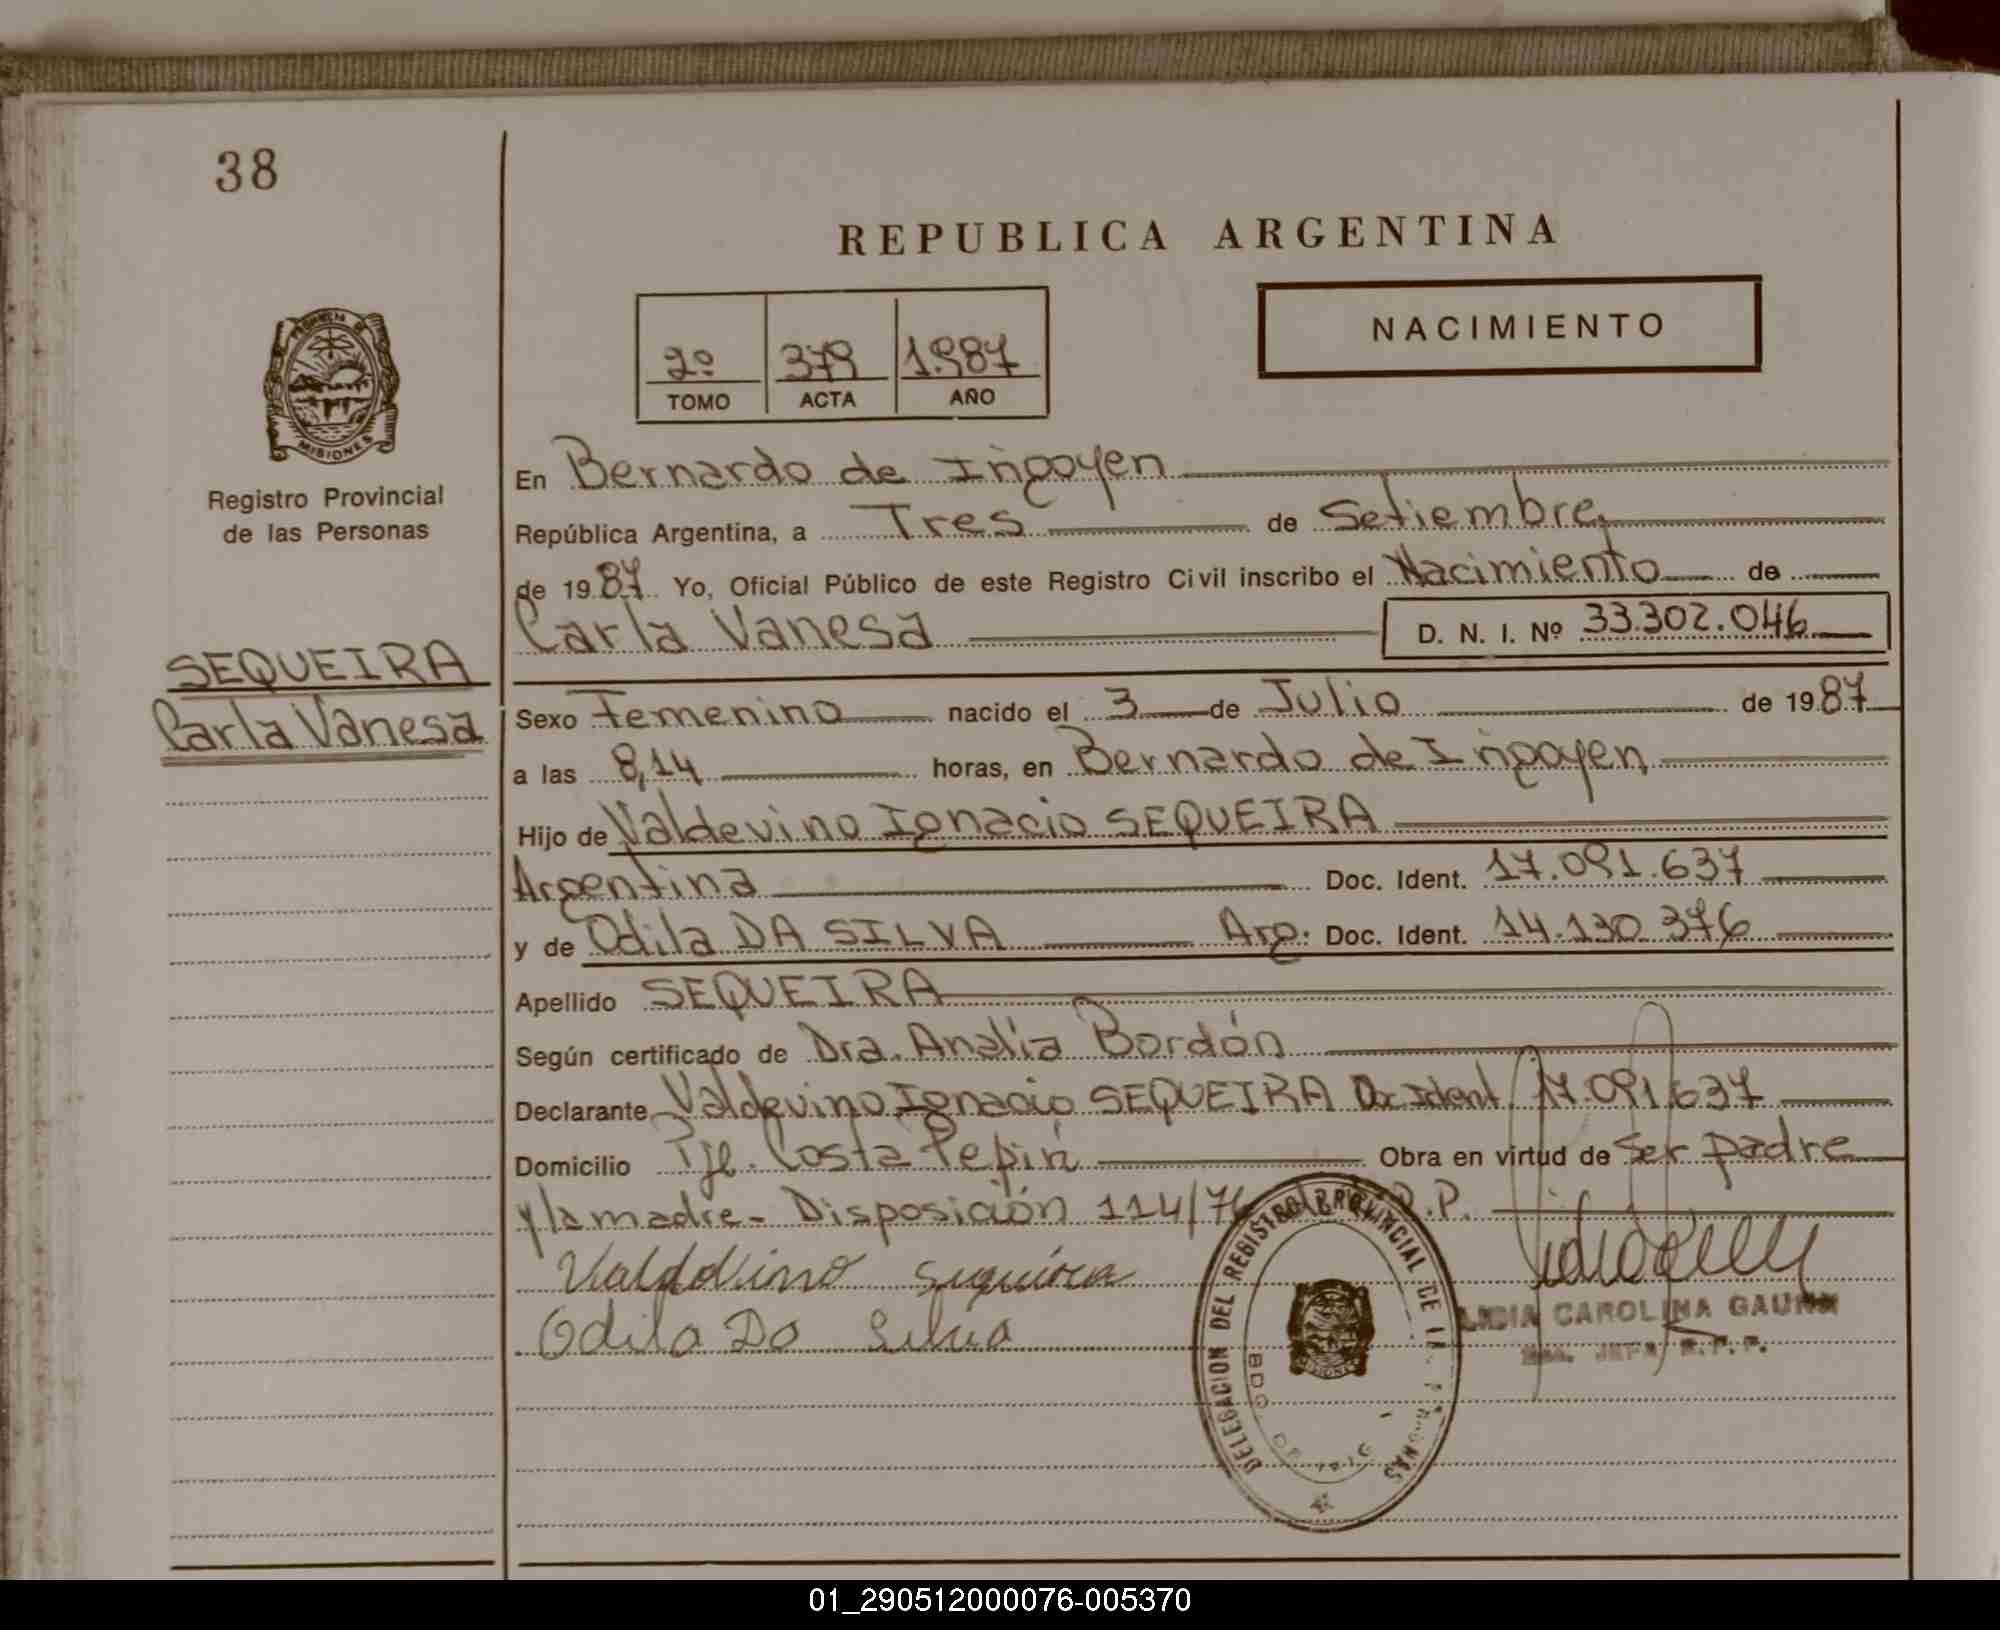 38
REPUBLICA ARGENTINA
NACIMIENTO
2º 379 1.987
TOMO ACTA AÑO
PROVINCIA DE
MISIONES
Registro Provincial
de las Personas
SEQUEIRA
Carla Vanesa
En Bernardo de Irigoyen
República Argentina, a Tres de Setiembre
de 1987 Yo, Oficial Público de este Registro Civil inscribo el Nacimiento de
Carla Vanesa D. N. I. Nº 33.302.046
Sexo Femenino nacido el 3 de Julio de 1987
a las 8,14 horas, en Bernardo de Irigoyen
Hijo de Valdevino Ignacio SEQUEIRA
Argentina Doc. Ident. 17.091.637
y de Odila DA SILVA Arg. Doc. Ident. 14.130.376
Apellido SEQUEIRA
Según certificado de Dra. Analía Bordón
Declarante Valdevino Ignacio SEQUEIRA Doc Ident. 17.091.637
Domicilio Pje. Costa Pepiri Obra en virtud de ser padre
y la madre - Disposición 114/76 P.P.
Valdovino Sequeira
Odila Da Silva
DELEGACION DEL REGISTRO PROVINCIAL DE LAS PERSONAS
BDO. DE IRIG
MISIONES
LIDIA CAROLINA GAUNA
JEFA R.P.P.
01_290512000076-005370